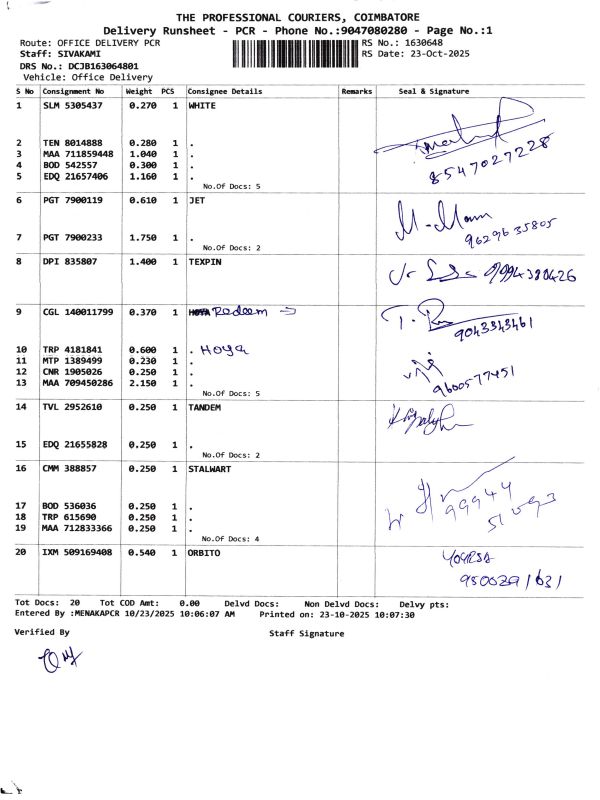 THE PROFESSIONAL COURIERS, COIMBATORE
Delivery Runsheet - PCR - Phone No.:9047080280 - Page No.:1
Route: OFFICE DELIVERY PCR RS No.: 1630648
Staff: SIVAKAMI RS Date: 23-Oct-2025
DRS No.: DCJB163064801
Vehicle: Office Delivery
S No Consignment No Weight PCS Consignee Details Remarks Seal & Signature
1 SLM 5305437 0.270 1 WHITE
2 TEN 8014888 0.280 1 .
3 MAA 711859448 1.040 1 .
4 BOD 542557 0.300 1 .
8547027228
5 EDQ 21657406 1.160 1 .
No.Of Docs: 5
6 PGT 7900119 0.610 1 JET
9629635805
7 PGT 7900233 1.750 1 .
No.Of Docs: 2
8 DPI 835807 1.400 1 TEXPIN
9 CGL 140011799 0.370 1 HOYA Redeem →
9043343461
10 TRP 4181841 0.600 1 . Hoya
11 MTP 1389499 0.230 1 .
12 CNR 1905026 0.250 1 .
13 MAA 709450286 2.150 1 .
9600577451
No.Of Docs: 5
14 TVL 2952610 0.250 1 TANDEM
15 EDQ 21655828 0.250 1 .
No.Of Docs: 2
16 CMM 388857 0.250 1 STALWART
99944
17 BOD 536036 0.250 1 .
18 TRP 615690 0.250 1 .
19 MAA 712833366 0.250 1 .
No.Of Docs: 4
20 IXM 509169408 0.540 1 ORBITO
Tot Docs: 20 Tot COD Amt: 0.00 Delvd Docs: Non Delvd Docs: Delvy pts:
Entered By :MENAKAPCR 10/23/2025 10:06:07 AM Printed on: 23-10-2025 10:07:30
Verified By Staff Signature